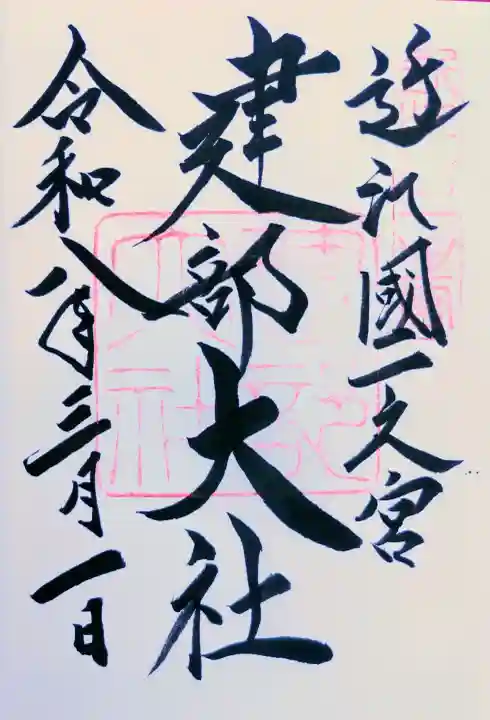 近江國一之宮
建部大社
令和八年三月一日